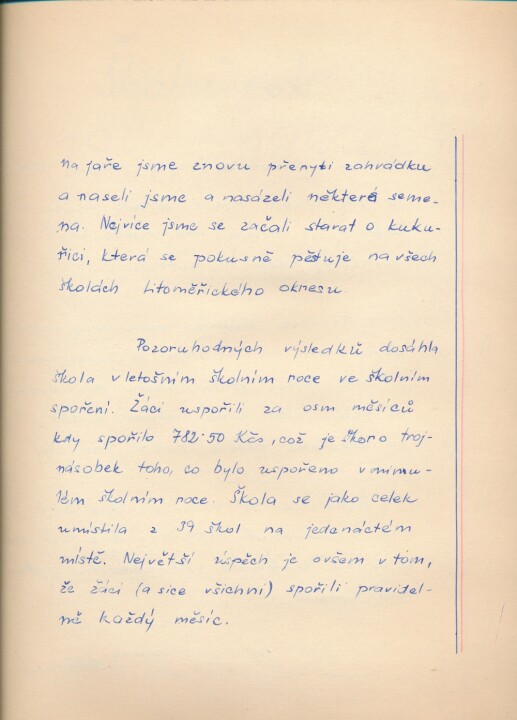 na jaře jsme znovu přeryli zahrádku
a naseli jsme a nasázeli některé seme-
na. Nejvíce jsme se začali starat o kuku-
řici, která se pokusně pěstuje na všech
školách Litoměřického okresu
Pozoruhodných výsledků dosáhla
škola v letošním školním roce ve školním
spoření. Žáci uspořili za osm měsíců
kdy spořilo 782·50 Kčs, což je skoro troj-
násobek toho, co bylo uspořeno v minu-
lém školním roce. Škola se jako celek
umístila z 39 škol na jedenáctém
místě. Největší úspěch je ovšem v tom,
že žáci (a sice všichni) spořili pravidel-
ně každý měsíc.